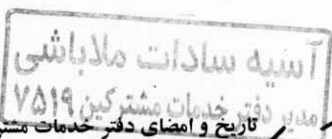 آسیه سادات ملاباشی
مدیر دفتر خدمات مشترکین ۷۵۱۹
تاریخ و امضای دفتر خدمات مشتر